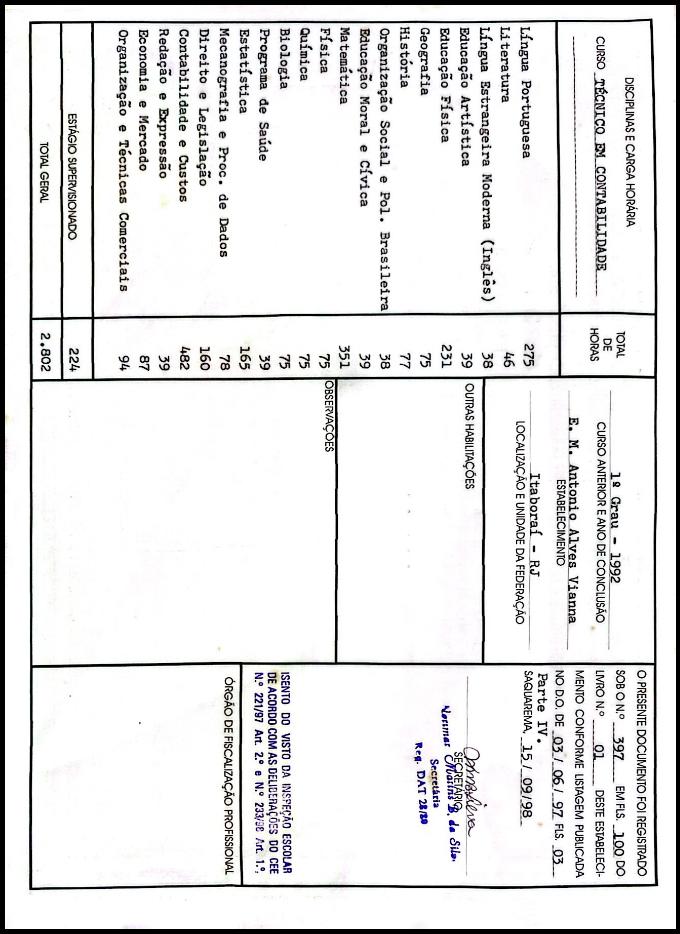 DISCIPLINAS E CARGA HORÁRIA
CURSO TÉCNICO EM CONTABILIDADE
TOTAL
DE
HORAS
Língua Portuguesa 275
Literatura 46
Língua Estrangeira Moderna (Inglês) 38
Educação Artística 39
Educação Física 231
Geografia 75
História 77
Organização Social e Pol. Brasileira 38
Educação Moral e Cívica 39
Matemática 351
Física 75
Química 75
Biologia 75
Programa de Saúde 39
Estatística 165
Mecanografia e Proc. de Dados 78
Direito e Legislação 160
Contabilidade e Custos 482
Redação e Expressão 39
Economia e Mercado 87
Organização e Técnicas Comerciais 94
ESTÁGIO SUPERVISIONADO 224
TOTAL GERAL 2.802
1º Grau - 1992
CURSO ANTERIOR E ANO DE CONCLUSÃO
E. M. Antonio Alves Vianna
ESTABELECIMENTO
Itaboraí - RJ
LOCALIZAÇÃO E UNIDADE DA FEDERAÇÃO
OUTRAS HABILITAÇÕES
OBSERVAÇÕES
O PRESENTE DOCUMENTO FOI REGISTRADO
SOB O N.º 397 EM FLS. 100 DO
LIVRO N.º 01 DESTE ESTABELECI-
MENTO CONFORME LISTAGEM PUBLICADA
NO D.O. DE 03 / 06 / 97 FLS. 03
Parte IV.
SAQUAREMA, 15 / 09/98
SECRETÁRIO
B. da Silva
Secretária
Reg. DAT 28/80
ISENTO DO VISTO DA INSPEÇÃO ESCOLAR
DE ACORDO COM AS DELIBERAÇÕES DO CEE
N.º 221/97 Art. 2.º e N.º 233/98 Art. 1.º,
ÓRGÃO DE FISCALIZAÇÃO PROFISSIONAL